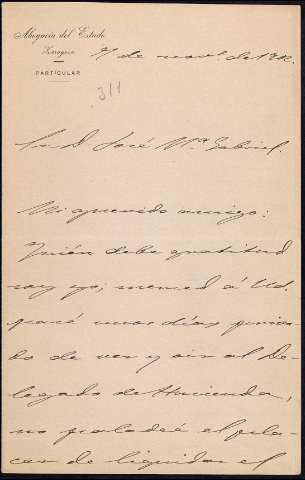 Abogacía del Estado
Zaragoza
PARTICULAR
7 de novbe. de 1912.
311
Sr. D. José Mª Gabriel.
Mi querido amigo:
Quién debe gratitud
soy yo; merced á Ud.
pasé unos días
de ver y oir al De-
legado de Hacienda,
no paladeé el pla-
cer de liquidar el